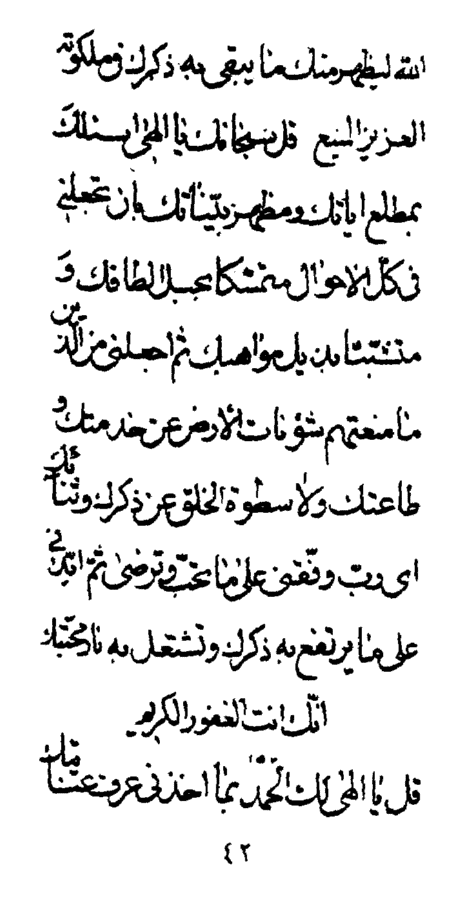 الله ليظهر منك ما يبقى به ذكرك فى ملكوته
العزيز المنيع قل سبحانك يا الهى اسئلك
بمطلع اياتك و مظهر بيّناتك بان تجعلنى
فى كلّ الاحوال متمسّكا بحبل الطافك وَ
متشبّثا بذيل مواهبك ثمّ اجعلنى من الّذين
ما منعتهم شئونات الارض عن خدمتك و
طاعتك ولا سطوة الخلق عن ذكرك و ثنائك
اى ربّ وفّقنى على ما تحبّ و ترضى ثمّ ايّدنى
على ما يرتفع به ذكرك و تشتعل به نار محبّتك
انّك انت الغفور الكريم
قل يا الهى لك الحمد بما اخذنى عرف عنايتك
٤٢